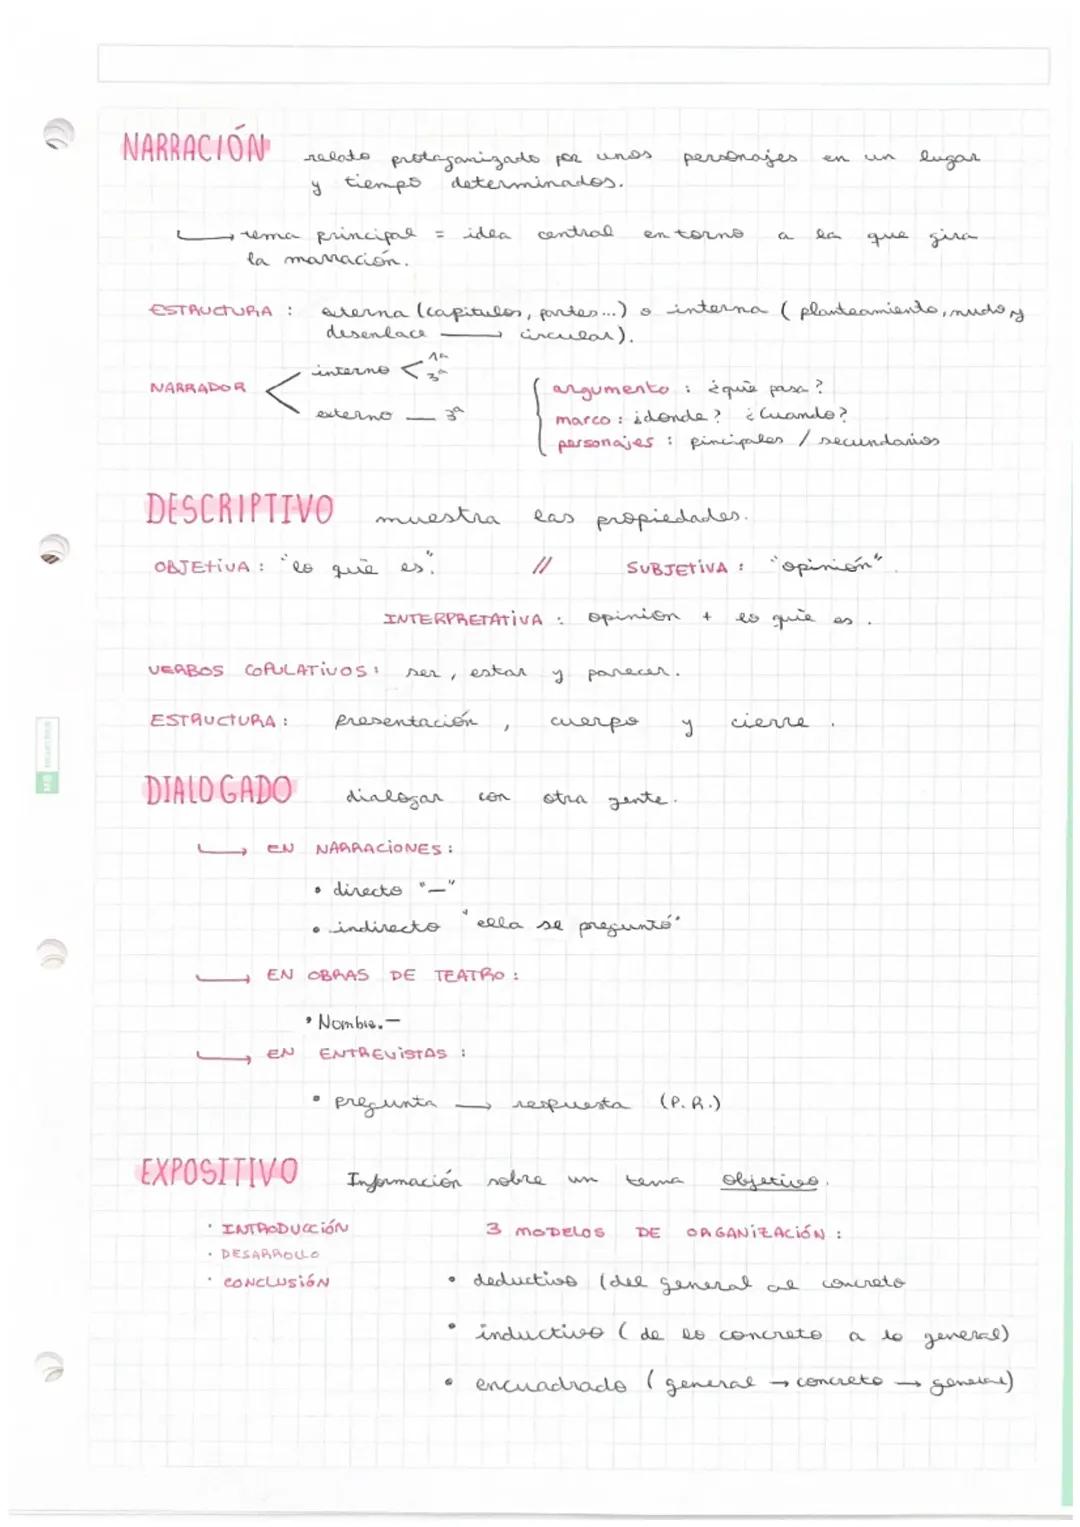 NARRACIÓN relato protaganizado por unos personajes en un lugar
y tiempo determinados.
→ tema principal = idea central en torno a la que gira
la narración.
ESTRUCTURA : externa (capítulos, partes...) o interna ( planteamiento, nudo y
desenlace → circular).
NARRADOR < interno < 1ª 3ª
externo — 3ª
argumento : ¿qué pasa?
marco : ¿donde? ¿Cuando?
personajes : pincipales / secundarios
DESCRIPTIVO muestra las propiedades.
OBJETIVA : "lo que es". // SUBJETIVA : "opinión".
INTERPRETATIVA : opinion + lo que es .
VERBOS COPULATIVOS : ser, estar y parecer.
ESTRUCTURA : presentación , cuerpo y cierre .
DIALOGADO dialogar con otra gente.
→ EN NARRACIONES :
• directo "—"
• indirecto "ella se preguntó"
→ EN OBRAS DE TEATRO :
• Nombre.—
→ EN ENTREVISTAS :
• pregunta → respuesta (P.R.)
EXPOSITIVO Información sobre un tema objetivo.
• INTRODUCCIÓN
• DESARROLLO
• CONCLUSIÓN
3 MODELOS DE ORGANIZACIÓN :
• deductivo (del general al concreto
• inductivo ( de lo concreto a lo general)
• encuadrado ( general → concreto → general)